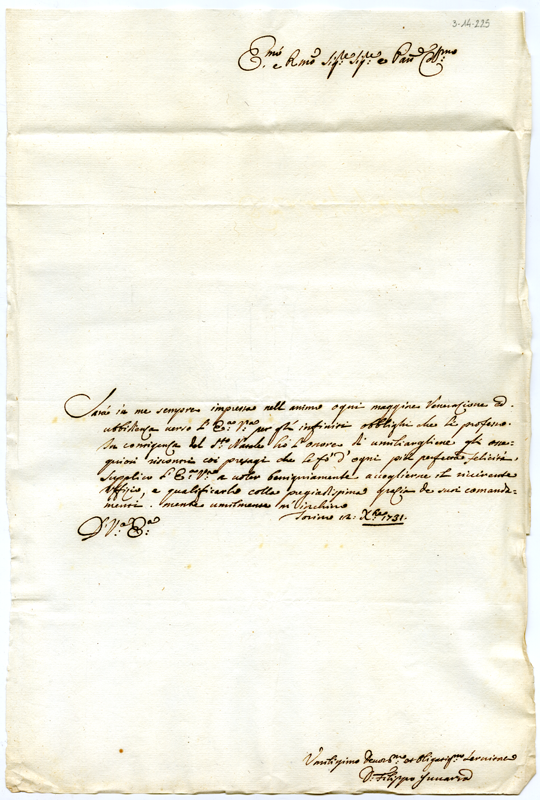 3-14-225
E.mo e R.mo Sig.re Sig.re e Pad.ne Col.mo
Sarà in me sempre impressa nell'animo ogni maggior Venerazione ed
ubbidienza verso l'E.za V.ra per gl'infiniti obblighi che le professo.
In contiguenza del S.to Natale hò l'onore di umiliargliene gli osse-
quiosi riscontri coi presagi che le fo' d'ogni più perfetta felicità
Supplico l'E.za V.ra a voler benignamente accoglierne il riverente
Ufficio, e qualificarlo colla pregiatissima grazia de suoi comanda-
menti. mentre umilmente m'inchino
Torino 12. Xbre 1731.
Di V.ra E.za
Umilissimo Devot.mo et Obligatis.mo Servitore
D. Filippo Juvarra